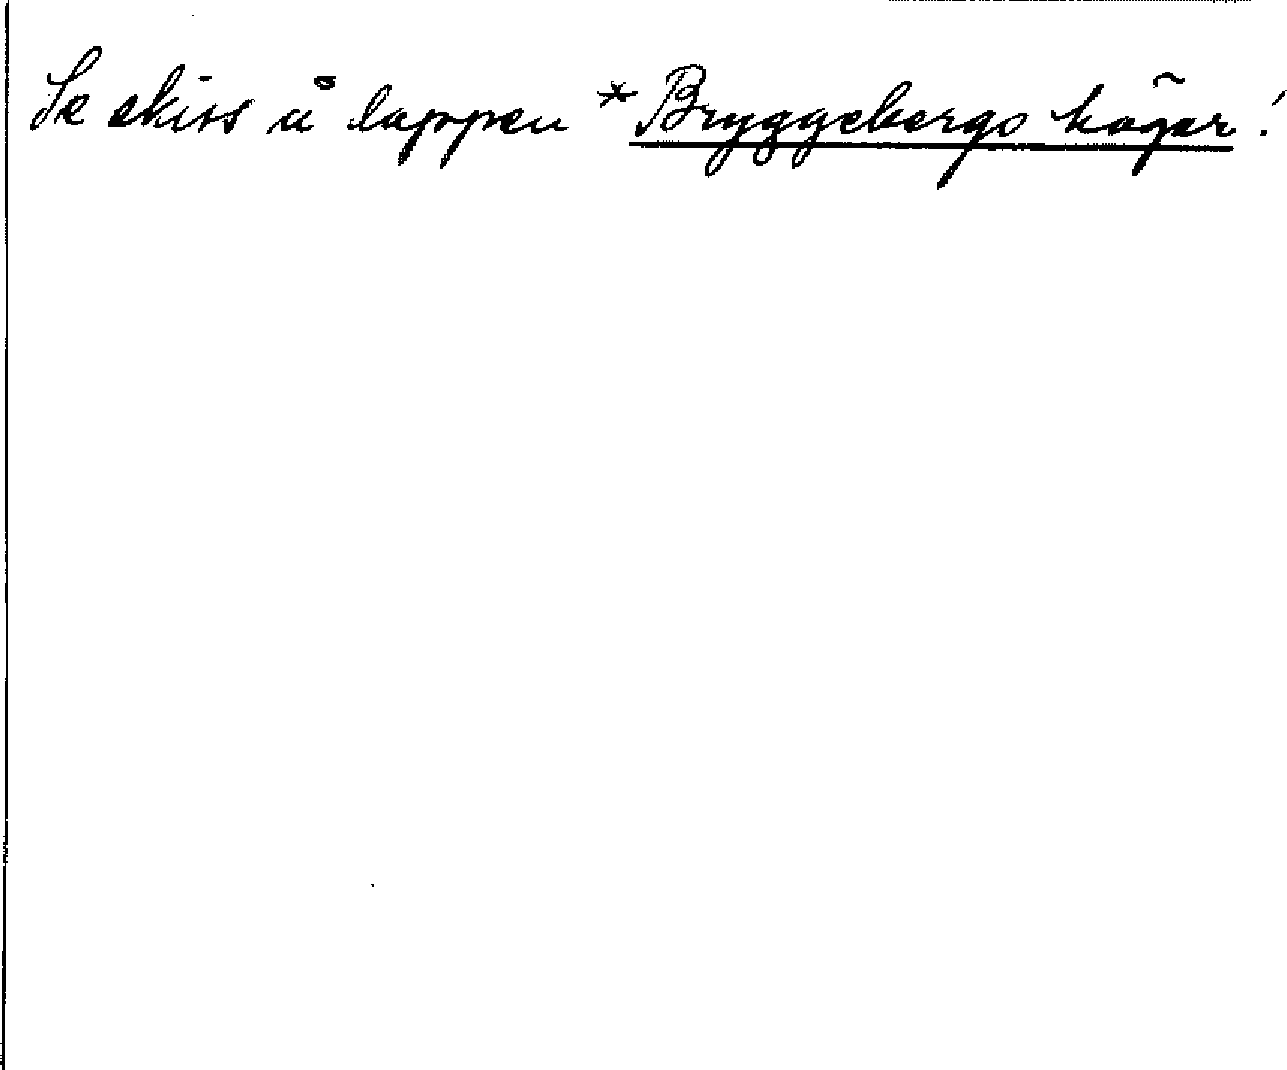 Se skiss å lappen *Bryggebergs högar!